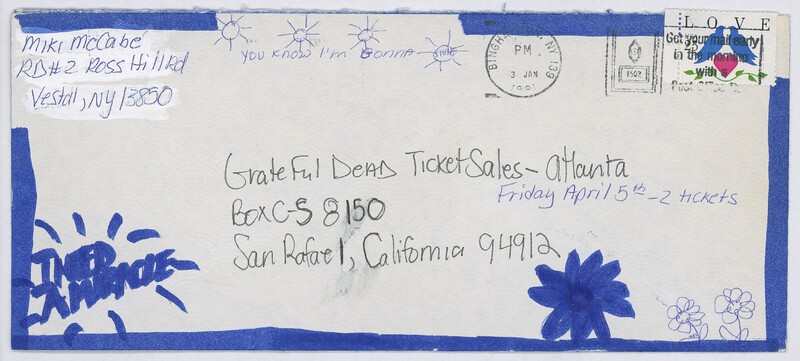 Miki McCabe
RD#2 Ross Hill Rd
Vestal, NY 13850
YOU KNOW I'M GONNA SHINE
BINGH NY 139
PM
3 JAN
1991
1502
LOVE
Get your mail early
in the morning
with a
Grateful DEAD Ticket Sales - Atlanta
Friday April 5th - 2 tickets
BOX C-S 8150
San Rafael, California 94912
I NEED
A MIRACLE